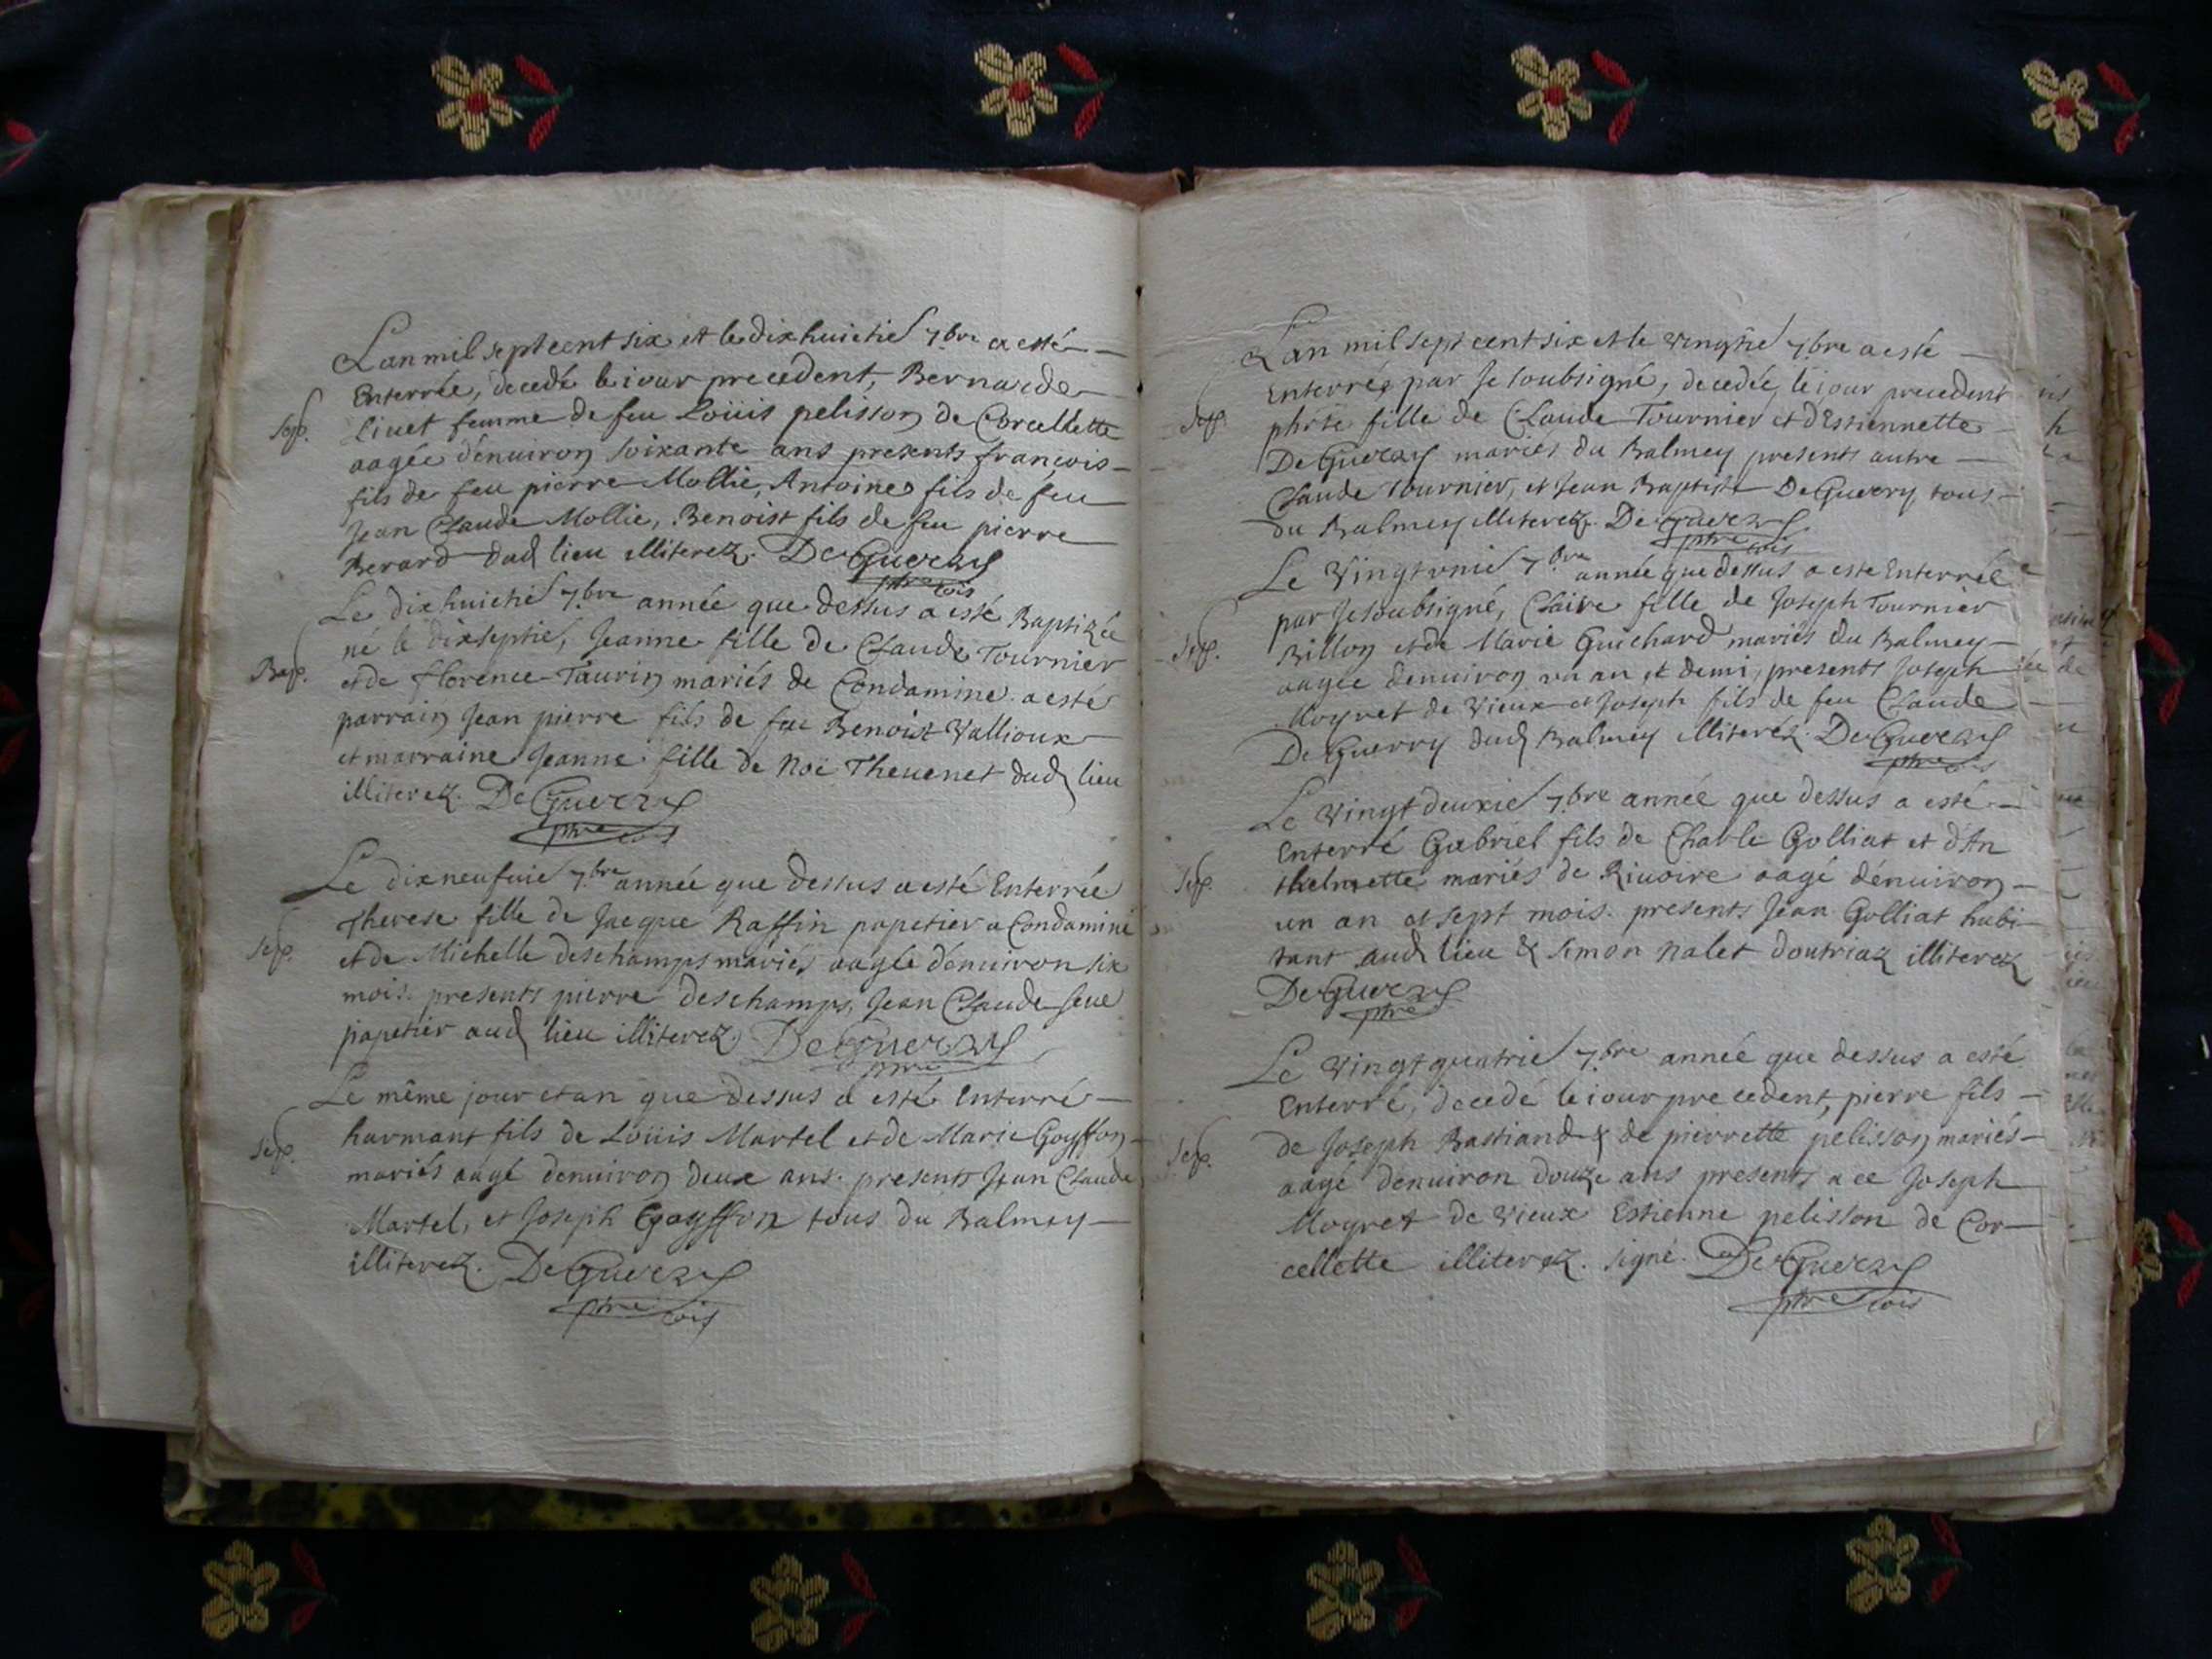 Lan mil sept cent six et le dixhuictie 7.bre a esté
Enterrée, decedé le iour precedent, Bernarde
Sep. Liuet femme de feu Loüis pelisson de Corcellette
aagée dénuiron soixante ans presents françois
fils de feu pierre Mollie, Antoine fils de feu
Jean Claude Mollie, Benoist fils de feu pierre
Berard dud lieu illiterez. DeGuerry
ptre
Le dixhuictie 7.bre année que dessus a esté Baptizée
né le dixseptie, Jeanne fille de Claude Tournier
Bap. et de florence Taurin mariés de Condamine a esté
parrain Jean pierre fils de feu Benoist Vallioux
et marraine Jeanne fille de Noë Theuenet dud lieu
illiterez. DeGuerry
ptre
Le dixneufuie 7.bre année que dessus a esté Enterrée
Therese fille de Jacque Raffin papetier a Condamine
Sep. et de Michelle deschamps mariés aagée dénuiron six
mois. presents pierre deschamps, Jean Claude
papetier aud lieu illiterez. DeGuerry
ptre
Le même jour et an que dessus a esté Enterré
Sep. harmant fils de Loüis Martel et de Marie Goyffon
mariés aagé denuiron deux ans. presents Jean Claude
Martel, et Joseph Goyffon tous du Balmey
illiterez. DeGuerry
ptre
Lan mil sept cent six et le vingtie 7.bre a esté
Enterrée par Je soubsigné, decedée le iour precedent
Sep. fille de Claude Tournier et dEstiennette
DeGuerry mariés du Balmey presents autre
Claude Tournier, et Jean Baptiste DeGuerry tous
du Balmey illiterez. DeGuerry
ptre
Le Vingtvnie 7.bre année que dessus a este Enterrée
par Je soubsigné, Claire fille de Joseph Tournier
Sep. Billon et de Marie Guichard mariés du Balmey
aagée denuiron vn an et demi, presents Joseph
Moyret de Vieux et Joseph fils de feu Claude
DeGuerry dud Balmey illiteréz. DeGuerry
ptre
Le Vingtdeuxie 7.bre année que dessus a esté
Enterré Gabriel fils de Charle Golliat et dAn
Sep. thelmette mariés de Riuoire aagé dénuiron
un an et sept mois. presents Jean Golliat habi-
tant aud lieu & Simon Nalet doutriaz illiterez
DeGuerry
ptre
Le Vingtquatrie 7.bre année que dessus a esté
Enterré, decedé le iour precedent, pierre fils
Sep. de Joseph Bastiand & de pierrette pelisson mariés
aagé denuiron douze ans presents a ce Joseph
Moyret de Vieux Estienne pelisson de Cor-
cellette illiterez. signé. DeGuerry
ptre